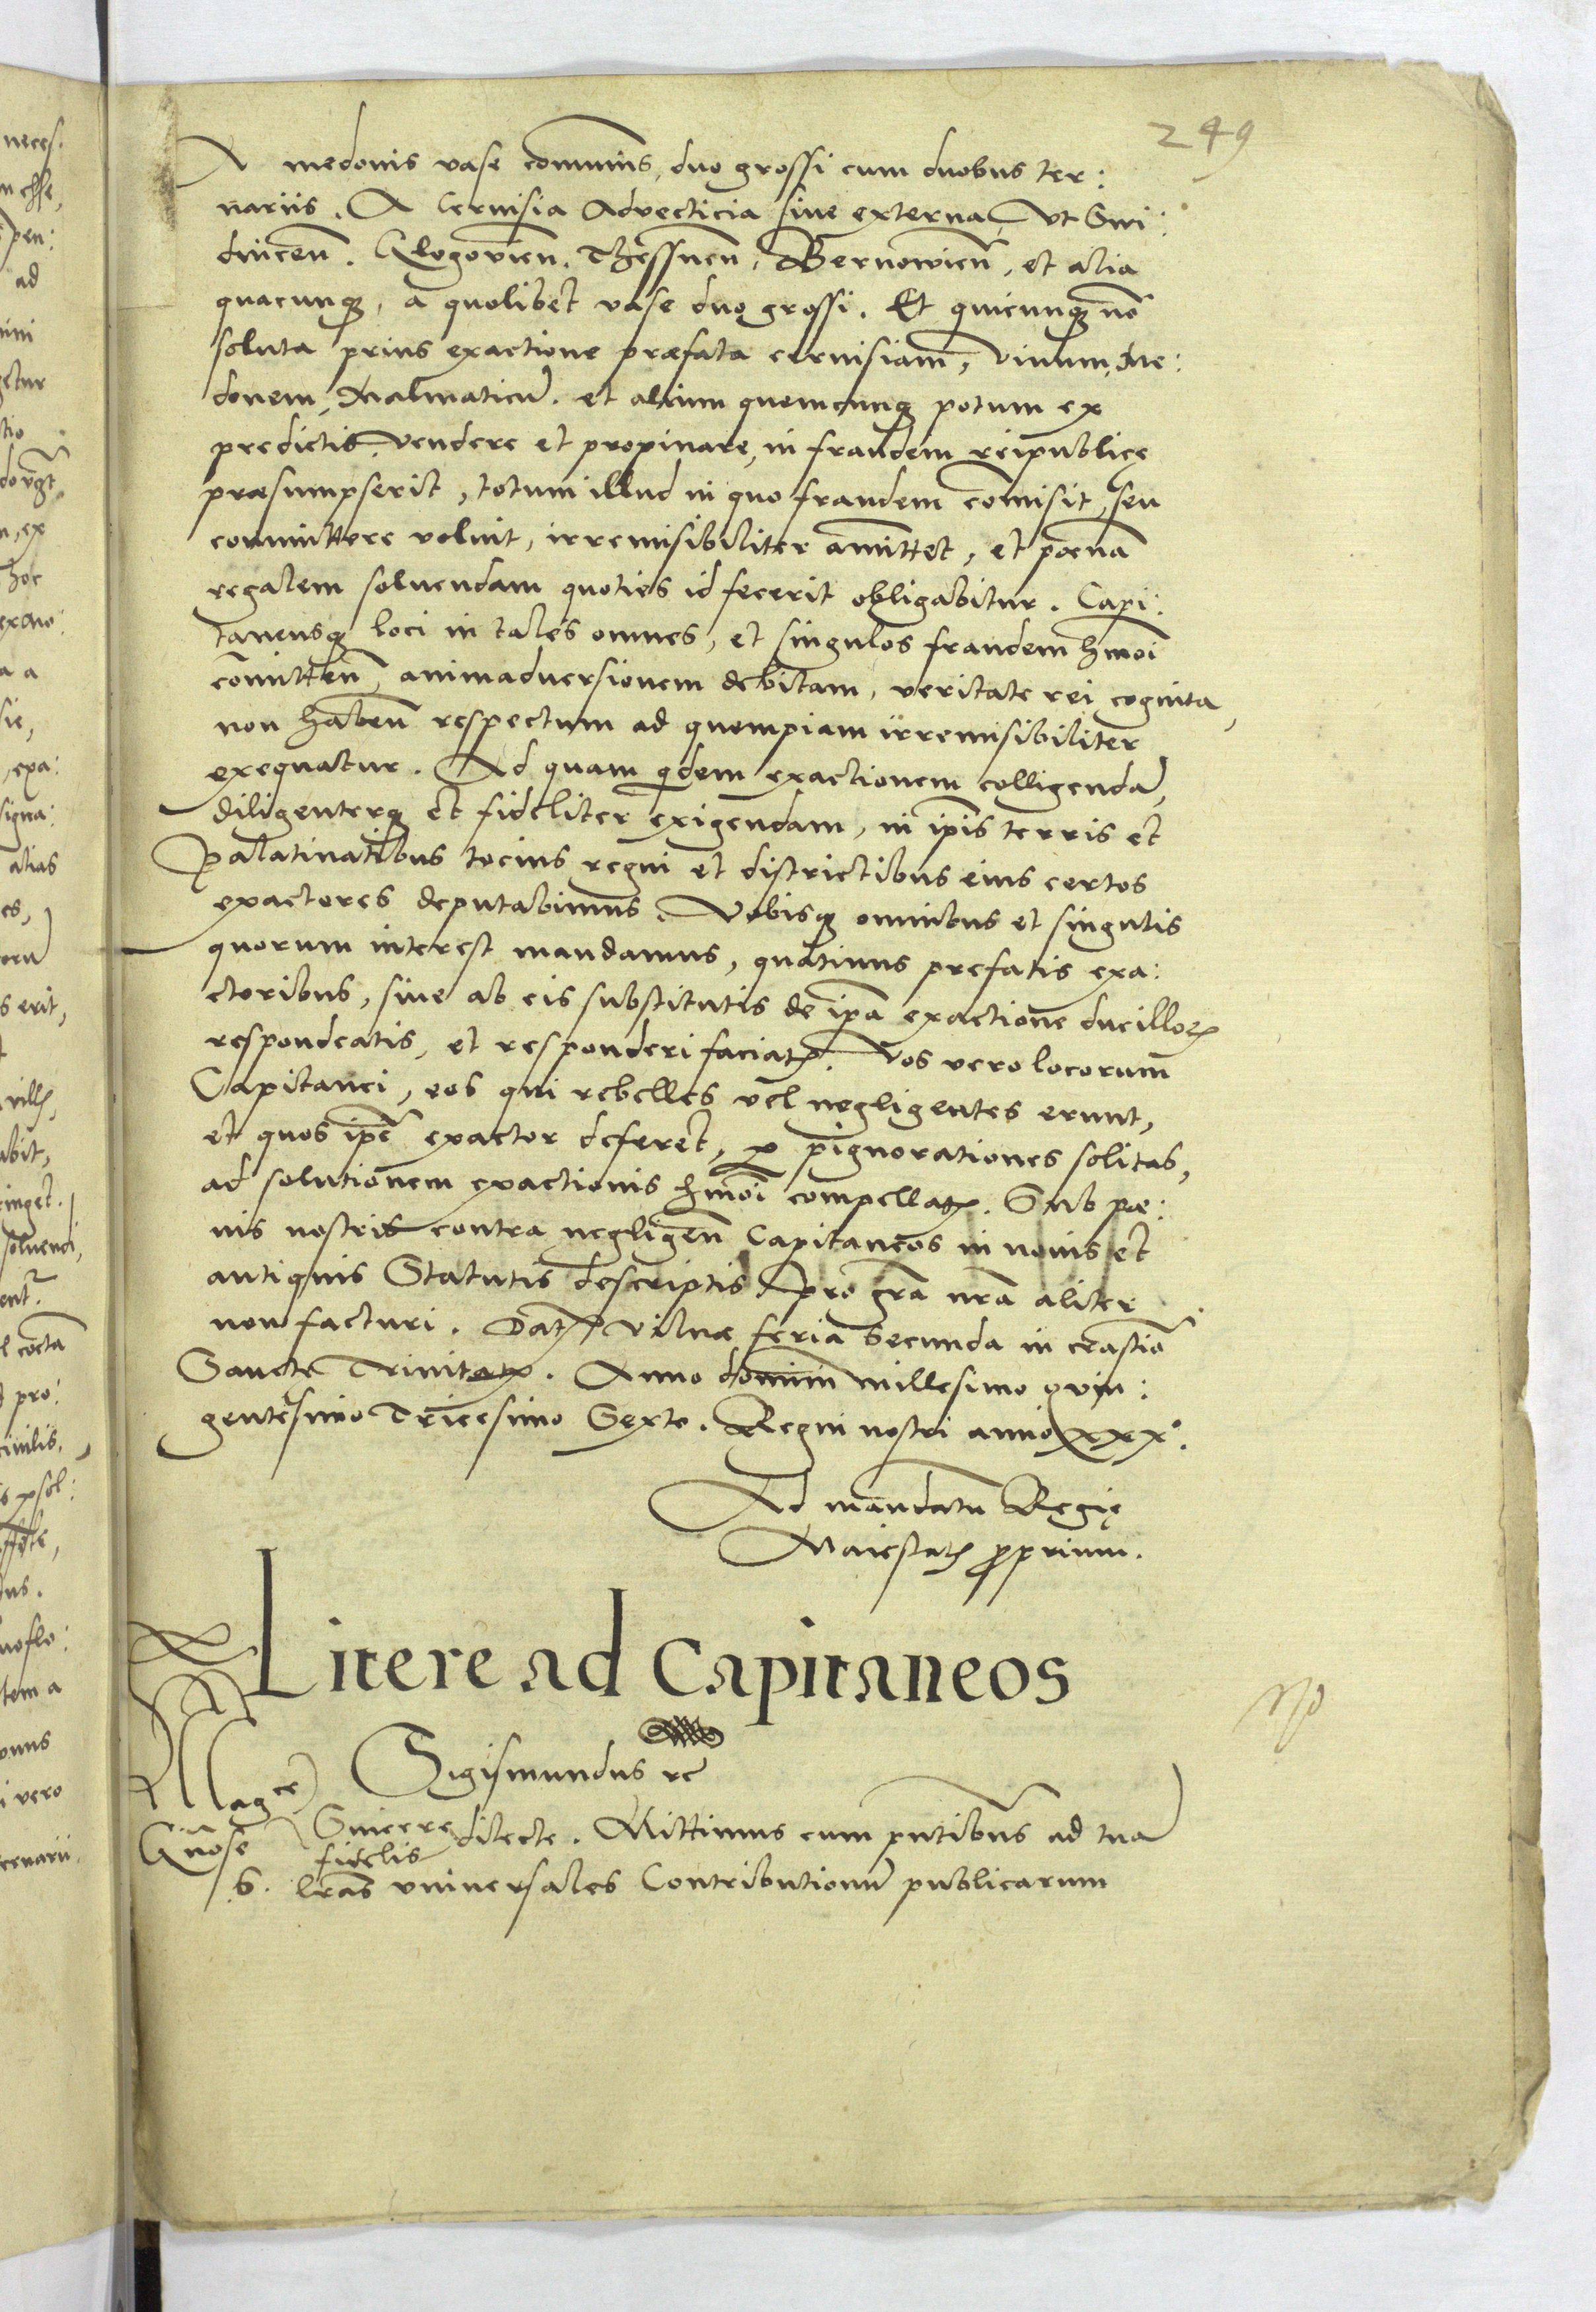 249
A medonis vase communis, duo grossi cum duobus ter:
nariis. A Cervisia Advecticia sive externa, Ut Swi:
dnicen̄. Glogovien̄. Thessnen̄, Bernowien̄, et alia
quacunqꝫ, a quolibet vase duo grossi. Et quicunqꝫ nō
soluta prius exactione præfata cervisiam, vinum, Me:
donem, Malmaticū. et alium quemcunqꝫ potum ex
predictis, vendere et propinare, in fraudem reipublicę
præsumpserit, totum illud in quo fraudem cōmisit, seu
committere voluit, irremisibiliter amittet, et pœnā
regalem solvendam quoties id fecerit obligabitur. Capi:
taneusqꝫ loci in tales omnes, et singulos fraudem hmōi
cōmitten̄, animadversionem debitam, veritate rei cognita,
non haben̄ respectum ad quempiam irremisibiliter
exequatur. Ad quam qdem exactionem colligendā,
diligenterqꝫ et fideliter exigendam, in ipīs terris et
Palatinatibus tocius regni et districtibus eius certos
exactores deputabimus. Vobisqꝫ omnibus et singulis
quorum interest mandamus, quatinus prefatis exa:
ctoribus, sive ab eis substitutis de ipā exactione ducilloꝝ
respondeatis, et responderi faciatꝭ. Vos vero locorum
Capitanei, eos qui rebelles vel negligentes erunt,
et quos ipē exactor deferet, ꝑ pignorationes solitas,
ad solutionem exactionis hmōi compellatꝭ. Sub pœ:
nis nostris contra negligen̄ Capitaneos in novis et
antiquis Statutis descriptis. pro grā nrā aliter
non facturi. Datꝭ Vilnæ feria Secunda in crastiō
Sancte Trinitatꝭ. Anno domini millesimo quin:
gentesimo Tricesimo Sexto. Regni nostri anno xxx°.
Ad mandatū Regię
Maiestatꝭ ꝓprium.
Litere ad Capitaneos
Sigismundus rc̄
Magce
Gn̄ose Sincere dilecte. Mittimus cum pn̄tibus ad tuā
fidelis
S. lrās universales Contributionū publicarum